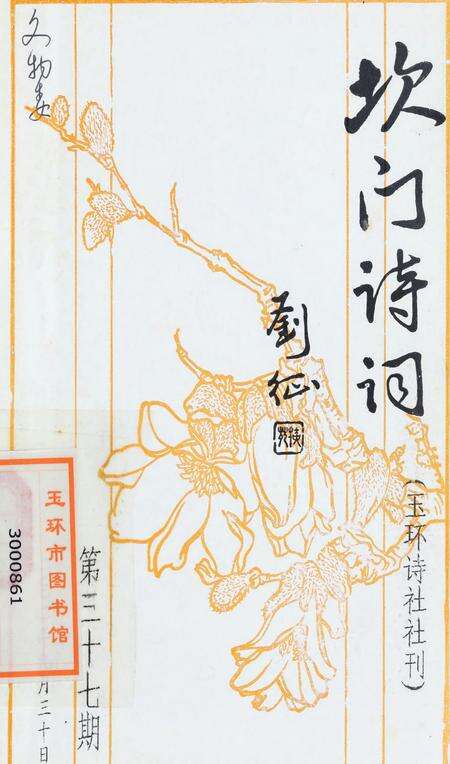 坎门诗词
(玉环诗社社刊)
劉征
第三十七期
月三十日
玉环市图书馆
3000861
文物